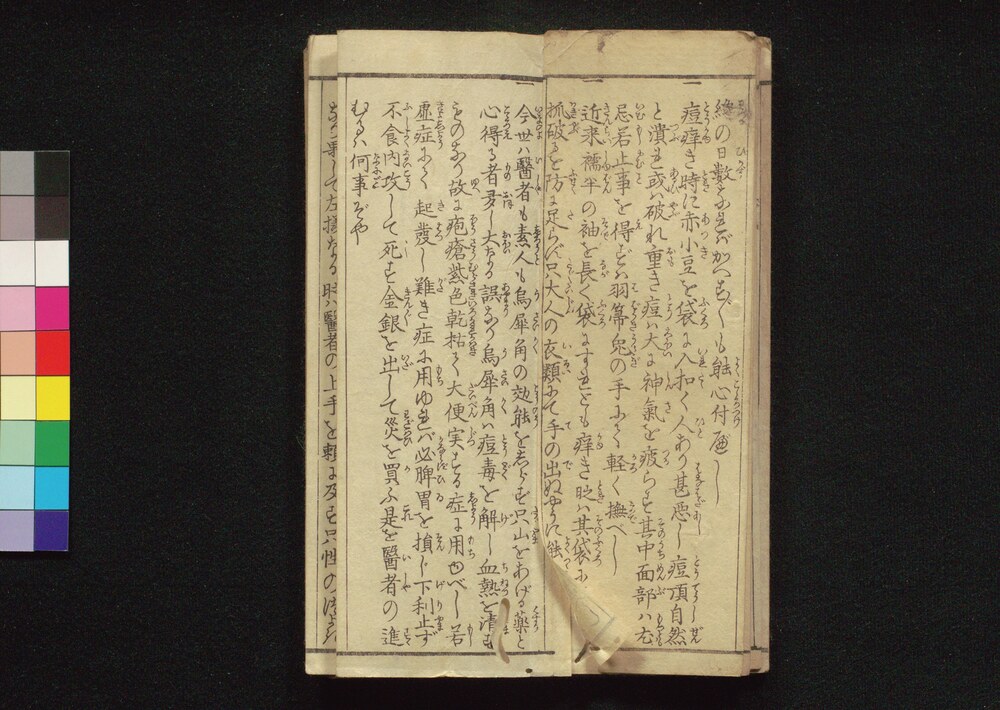 終の日数なればかへす〴〵も能心付べし
一 痘痒き時に赤小豆を袋に入扣く人あり甚悪し痘頂自然
と潰れ或ハ破れ重き痘ハ大に神氣を疲らす其中面部ハ尤
忌若止事を得ずハ羽箒兎の手にて軽く撫べし
一 近来襦半の袖を長く袋にすれども痒き時ハ其袋にて
抓破るを防に足らず只大人の衣類にて手の出ぬやうに能
一 今世ハ醫者も素人も烏犀角の効能をしらず只山をあげる薬と
心得る者多し大なる誤なり烏犀角ハ痘毒を解し血熱を清む
ものなり故に疱瘡紫色乾枯して大便実する症に用ゆべし若
虚症にて起發し難き症に用ゆれバ必脾胃を損じ下利止ず
不食内攻して死す金銀を出して災を買ふ是を醫者の進
むるハ何事ぞや
時ハ醫者の上手を頼に及ず只性の